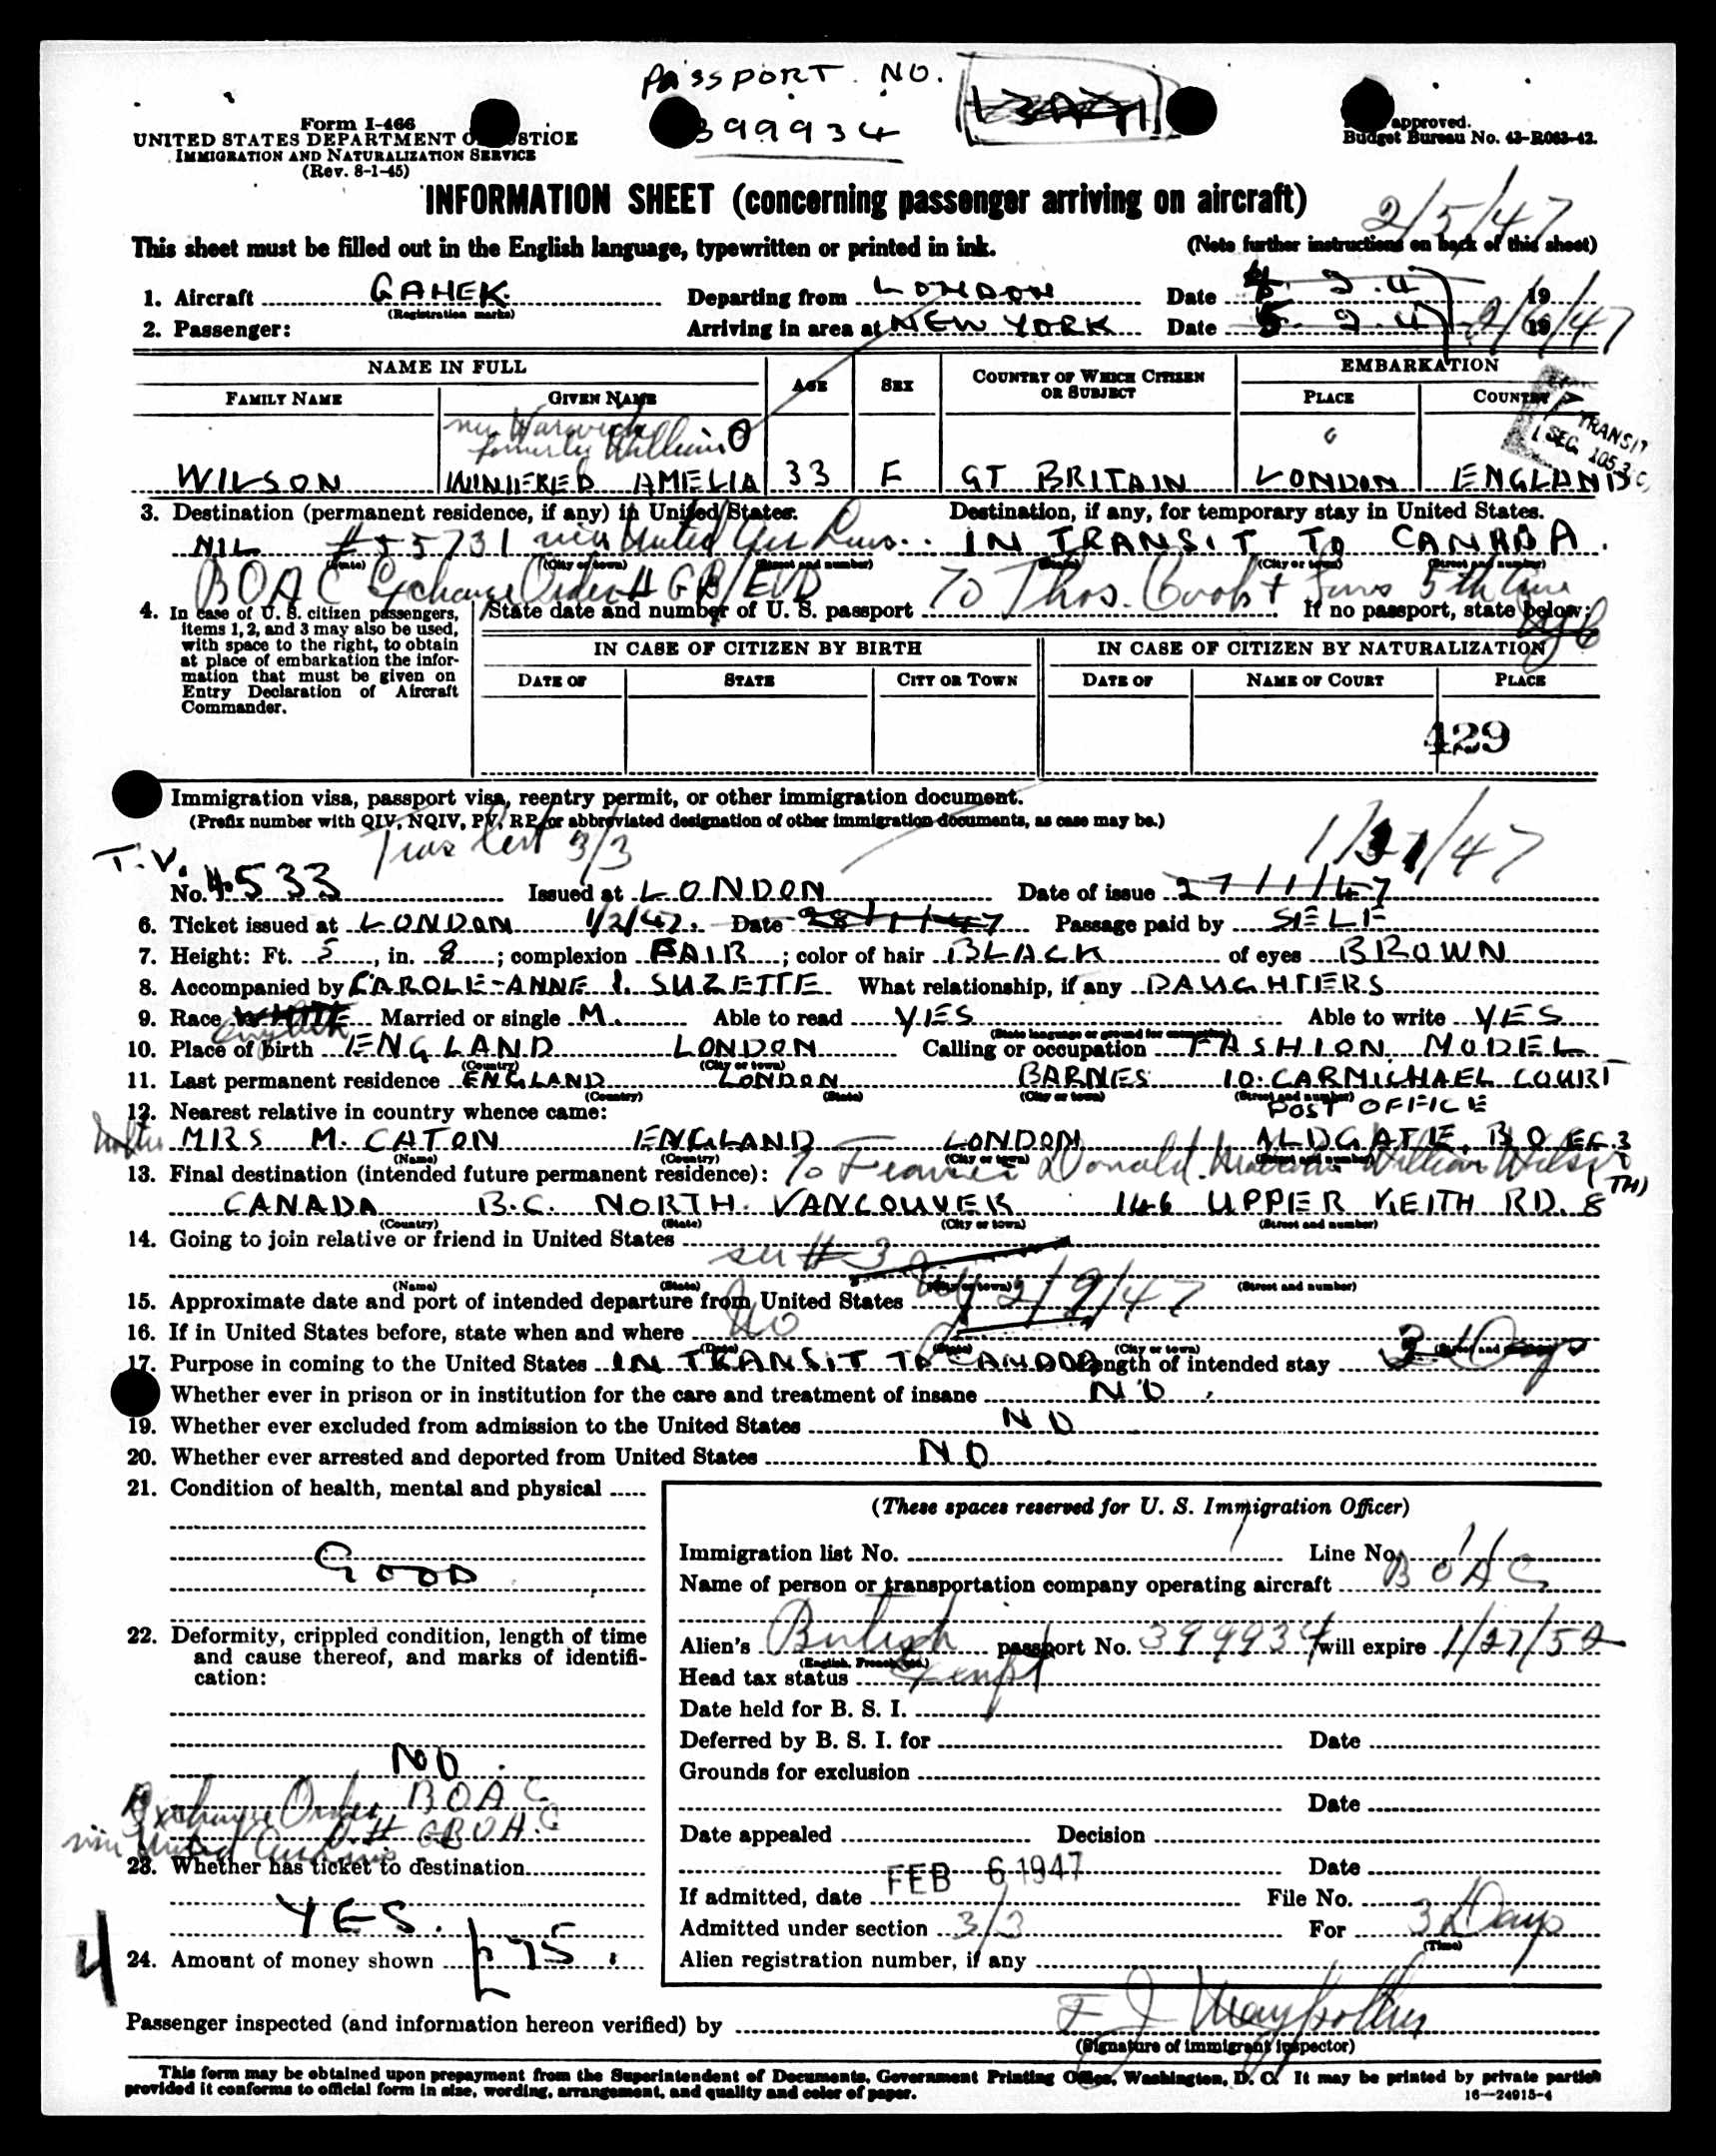 PASSPORT NO.
399934
Form I-466
UNITED STATES DEPARTMENT OF JUSTICE
IMMIGRATION AND NATURALIZATION SERVICE
(Rev. 8-1-45)
approved.
Budget Bureau No. 43-R063-42.
INFORMATION SHEET (concerning passenger arriving on aircraft)
2/5/47
This sheet must be filled out in the English language, typewritten or printed in ink. (Note further instructions on back of this sheet)
1. Aircraft GAHEK. (Registration marks) Departing from LONDON Date 4. 2. 47 19
2. Passenger: Arriving in area at NEW YORK Date 5. 2. 47 2/6/47 19
NAME IN FULL AGE SEX COUNTRY OF WHICH CITIZEN OR SUBJECT EMBARKATION
FAMILY NAME GIVEN NAME PLACE COUNTRY
TRANSIT
SEC. 105.3
nee Warwick
formerly William
WILSON WINIFRED AMELIA 33 F GT BRITAIN LONDON ENGLAND
3. Destination (permanent residence, if any) in United States. Destination, if any, for temporary stay in United States.
NIL #55731 via United Air Lines IN TRANSIT TO CANADA.
(State) (City or town) (Street and number) (State) (City or town) (Street and number)
BOAC Exchange Order # GB/EVD To Thos. Cook & Sons 5th Ave
4. In case of U. S. citizen passengers, items 1, 2, and 3 may also be used, with space to the right, to obtain at place of embarkation the information that must be given on Entry Declaration of Aircraft Commander.
State date and number of U. S. passport If no passport, state below:
IN CASE OF CITIZEN BY BIRTH IN CASE OF CITIZEN BY NATURALIZATION
DATE OF STATE CITY OR TOWN DATE OF NAME OF COURT PLACE
429
Immigration visa, passport visa, reentry permit, or other immigration document.
(Prefix number with QIV, NQIV, PV, RP, or abbreviated designation of other immigration documents, as case may be.)
Tras Cert 3/3 1/31/47
T.V.
No. 4533 Issued at LONDON Date of issue 27/1/47
6. Ticket issued at LONDON 1/2/47. Date 28/1/47 Passage paid by SELF
7. Height: Ft. 5, in. 8; complexion FAIR; color of hair BLACK of eyes BROWN
8. Accompanied by CAROLE-ANNE & SUZETTE What relationship, if any DAUGHTERS
9. Race WHITE English Married or single M. Able to read YES Able to write YES
(State language or ground for exemption)
10. Place of birth ENGLAND LONDON Calling or occupation FASHION MODEL
(Country) (City or town)
11. Last permanent residence ENGLAND LONDON BARNES 10. CARMICHAEL COURT
(Country) (State) (City or town) (Street and number)
12. Nearest relative in country whence came: POST OFFICE
Mother MRS M. CATON ENGLAND LONDON ALDGATE, B.O E.C.3
(Name) (Country) (City or town) (Street and number)
13. Final destination (intended future permanent residence): To Donald William Wilson
CANADA B.C. NORTH VANCOUVER 146 UPPER KEITH RD. 8 (TH)
(Country) (State) (City or town) (Street and number)
14. Going to join relative or friend in United States
see #3
(Name) (State) (City or town) (Street and number)
15. Approximate date and port of intended departure from United States 2/9/47
16. If in United States before, state when and where No
(Date) (State) (City or town) (Street and number)
17. Purpose in coming to the United States IN TRANSIT TO CANADA Length of intended stay 3 Days
Whether ever in prison or in institution for the care and treatment of insane NO
19. Whether ever excluded from admission to the United States NO
20. Whether ever arrested and deported from United States NO
21. Condition of health, mental and physical
GOOD
22. Deformity, crippled condition, length of time and cause thereof, and marks of identification:
NO.
Exchange Order BOAC
# GBOAC
via United Airlines
23. Whether has ticket to destination
YES.
4
24. Amount of money shown £75.
(These spaces reserved for U. S. Immigration Officer)
Immigration list No. Line No. 11
Name of person or transportation company operating aircraft BOAC
Alien's British passport No. 399934 will expire 1/27/52
(English, French, etc.)
Head tax status Exempt
Date held for B. S. I.
Deferred by B. S. I. for Date
Grounds for exclusion
Date
Date appealed Decision
Date
If admitted, date FEB 6 1947 File No.
Admitted under section 3/3 For 3 Days
(Time)
Alien registration number, if any
Passenger inspected (and information hereon verified) by
(Signature of immigrant inspector)
This form may be obtained upon prepayment from the Superintendent of Documents, Government Printing Office, Washington, D. C. It may be printed by private parties
provided it conforms to official form in size, wording, arrangement, and quality and color of paper. 16—24915-4